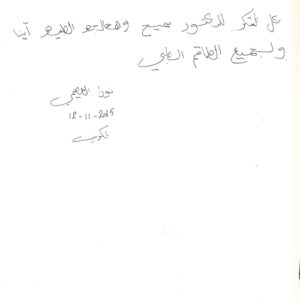 كل الشكر للدكتور سميح والمعالجة الطبيعية آينا
ولجميع الطاقم الطبي
نورا العجمي
12-11-2015
الكويت